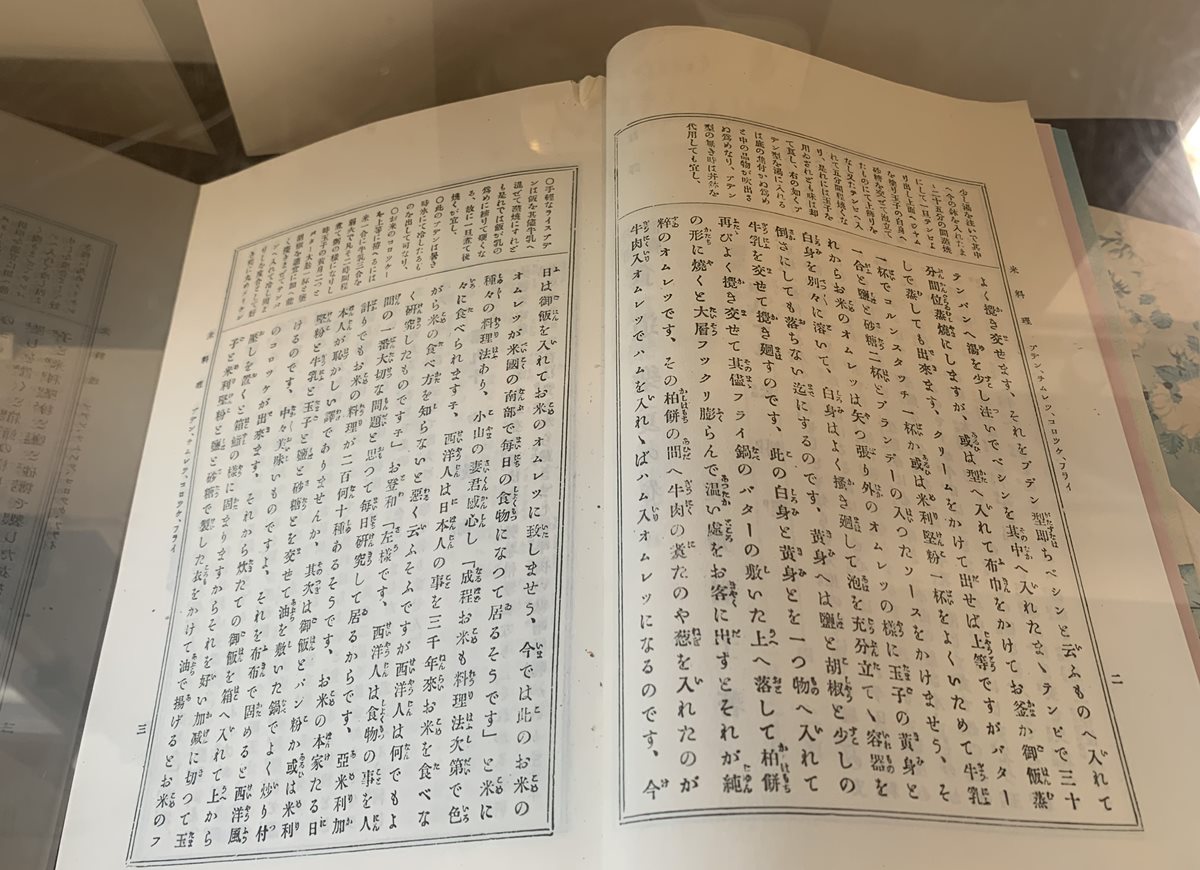 米料理
プデン、オムレツ、コロツケ、フライ
二
少し湯を注いで其中
へ今の鉢を入れたま
ゝ二十五分間蒸燒
にして一旦テンピよ
り出し上面へジヤム
を塗り玉子の白身へ
砂糖を交ぜて泡立て
たものにて上飾りを
なし又たテンピへ入
れて五分間程燒くな
り、是れには玉子を
用ゐざれども味は却
て宜し、右の如くプ
テン型を湯に入れる
は底の焦付かぬ爲め
と中の品物が吹出さ
ぬ爲めなり、プテン
型の無き時は丼鉢を
代用しても宜し、
よく攪き交ぜます、それをプデン型即ちベシンと云ふものへ入れて
テンパンへ湯を少し注いでベシンを其中へ入れたまゝテンピで三十
分間位蒸燒にしますが、或は型へ入れて布巾をかけてお釜か御飯蒸
しで蒸しても出來ます、クリームをかけて出せば上等ですがバター
一杯でコルンスタッチ一杯か或は米利堅粉一杯をよくいためて牛乳
一合と鹽と砂糖二杯とブランデーの入つたソースをかけませう、そ
れからお米のオムレツは矢つ張り外のオムレツの様に玉子の黄身と
白身を別々に溶いて、白身はよく掻き廻して泡を充分立て、容器を
倒さにしても落ちない迄にするのです、黄身へは鹽と胡椒と少しの
牛乳を交ぜて攪き廻すのです、此の白身と黄身とを一つ物へ入れて
再びよく攪き交ぜて其儘フライ鍋のバターの敷いた上へ落して柏餅
の形に燒くと大層フックリ膨らんで温い處をお客に出すとそれが純
粹のオムレツです、その柏餅の間へ牛肉の煑たのや葱を入れたのが
牛肉入オムレツでハムを入れゝばハム入オムレツになるのです、今
〇手輕なライスプデ
ンは飯を其儘牛乳へ
混ぜて蒸燒にすれど
も是れでは飯が乳の
爲めに締りて硬くな
る、故に一旦煮て後
燒くが宜し、
〇此のプデンは暑き
時氷にて冷したるも
のを出して可なり、
〇お米のコロツケー
を上等に拵へるには
米一合に牛乳三合を
弱火で凡そ一時間程
煮て粥の様になりし
時玉子の黄身二つと
バター大匙一杯と鹽
胡椒を適當に加へ能
く攪きまぜてテンパ
日は御飯を入れてお米のオムレツに致しませう、今では此のお米の
オムレツが米國の南部で毎日の食物になつて居るそうです」と米に
種々の料理法あり、小山の妻君感心し「成程お米も料理法次第で色
々に食べられますネ、西洋人は日本人の事を三千年來お米を食べな
がら米の食べ方を知らないと惡く云ふそふですが西洋人は何でもよ
く研究したものですネ」お登和「左様です、西洋人は食物の事を人
間の一番大切な問題と思つて毎日研究して居るからです、亞米利加
計りでもお米の料理が二百何十種あるそうです、お米の本家たる日
本人が恥かしい譯でありませんか、其次は御飯とパン粉か或は米利
堅粉と牛乳と玉子と鹽と砂糖とを交ぜて油を敷いた鍋でよく炒り付
けるのです、中々美味いものですよ、それを布巾で固めると西洋風
のコロッケが出來ます、それから炊たての御飯を箱へ入れて上から
壓しを置くと箱鮨の様に固まりますからそれを好い加減に切つて玉
子と米利堅粉と鹽と砂糖で製した衣をかけて油で揚げるとお米のフ
米料理
プデン、オムレツ、コロツケ、フライ
三